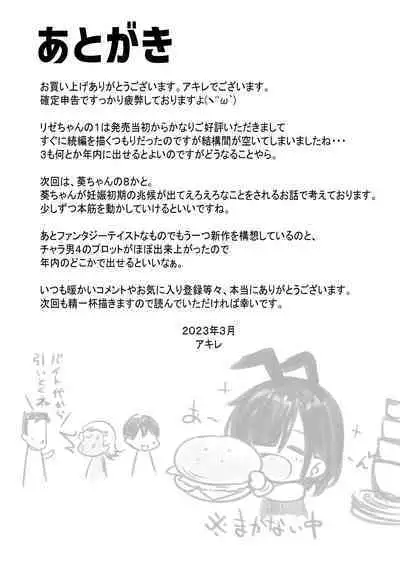 あとがき
お買い上げありがとうございます。アキレでございます。
確定申告ですっかり疲弊しておりますよ(ヽ''ω`)
リゼちゃんの1は発売当初からかなりご好評いただきまして
すぐに続編を描くつもりだったのですが結構間が空いてしまいましたね・・・
3も何とか年内に出せるとよいのですがどうなることやら。
次回は、葵ちゃんの8かと。
葵ちゃんが妊娠初期の兆候が出てえろえろなことをされるお話で考えております。
少しずつ本筋を動かしていけるといいですね。
あとファンタジーテイストなものでもう一つ新作を構想しているのと、
チャラ男4のプロットがほぼ出来上がったので
年内のどこかで出せるといいなぁ。
いつも暖かいコメントやお気に入り登録等々、本当にありがとうございます。
次回も精一杯描きますので読んでいただければ幸いです。
2023年3月
アキレ
バイト代から
引いとくね
あ～
ん
※まかない中